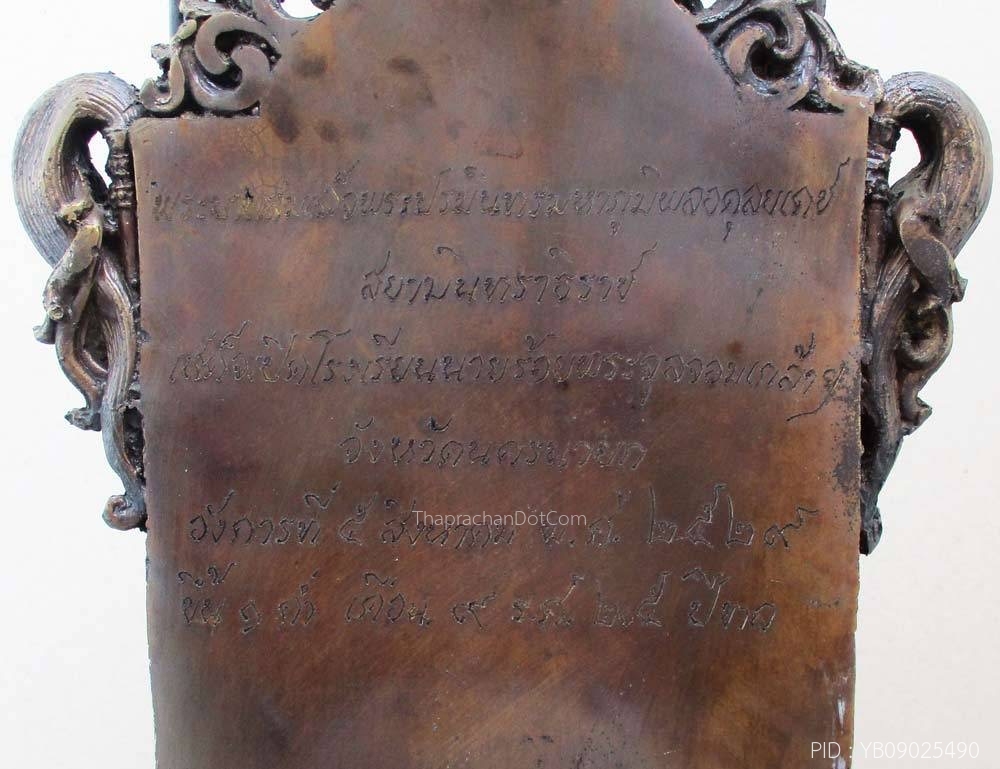 พระบาทสมเด็จพระปรมินทรมหาภูมิพลอดุลยเดช
สยามินทราธิราช
เสด็จเปิดโรงเรียนนายร้อยพระจุลจอมเกล้าฯ
จังหวัดนครนายก
ที่ ๕ สิงหาคม พ.ศ. ๒๕๒๙
ThaprachanDotCom
ขึ้น ๑ ค่ำ เดือน ๙ ปีขาล
PID : YB09025490